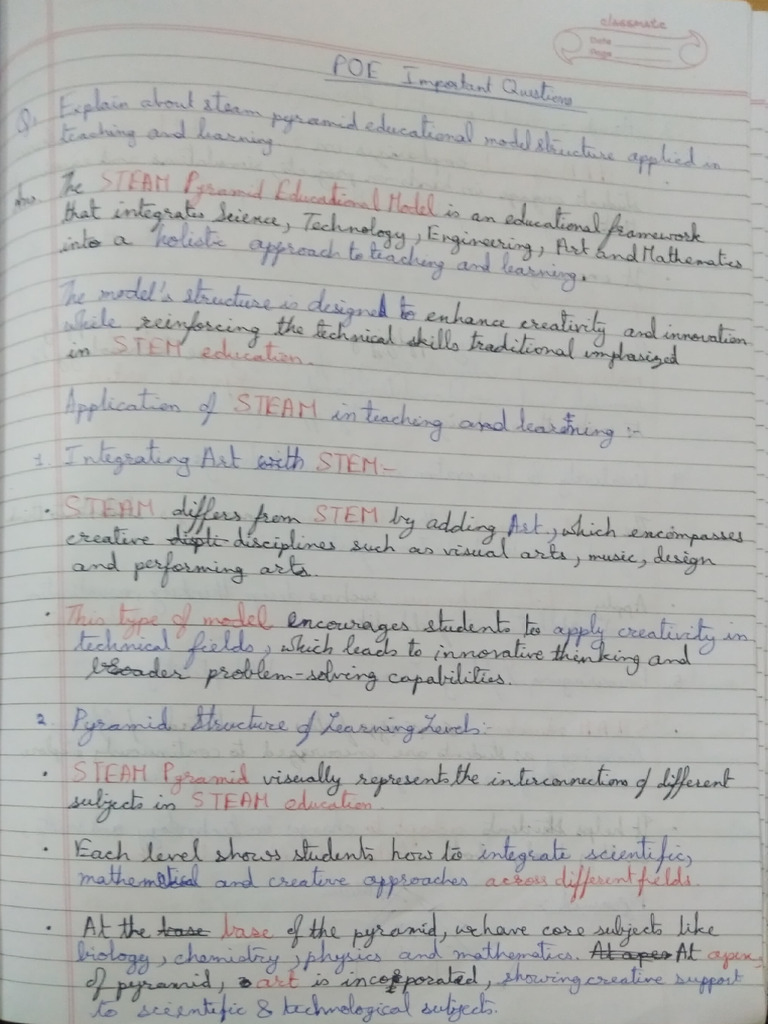 classmate
Date
Page
POE Important Questions
Q. Explain about steam pyramid educational model structure applied in
teaching and learning
Ans. The STEAM Pyramid Educational Model is an educational framework
that integrates Science, Technology, Engineering, Art and Mathematics
into a holistic approach to teaching and learning.
The model's structure is designed to enhance creativity and innovation
while reinforcing the technical skills traditional imphasized
in STEM education.
Application of STEAM in teaching and learning :-
1. Integrating Art with STEM:-
• STEAM differs from STEM by adding Art, which encompasses
creative disipli disciplines such as visual arts, music, design
and performing arts.
• This type of model encourages students to apply creativity in
technical fields, which leads to innovative thinking and
broader problem-solving capabilities.
2. Pyramid Structure of Learning Levels:-
• STEAM Pyramid visually represents the interconnection of different
subjects in STEAM education.
• Each level shows students how to integrate scientific,
mathematical and creative approaches across different fields.
• At the base base of the pyramid, we have core subjects like
biology, chemistry, physics and mathematics. At apex At apex
of pyramid, art is incorporated, showing creative support
to scientific & technological subjects.